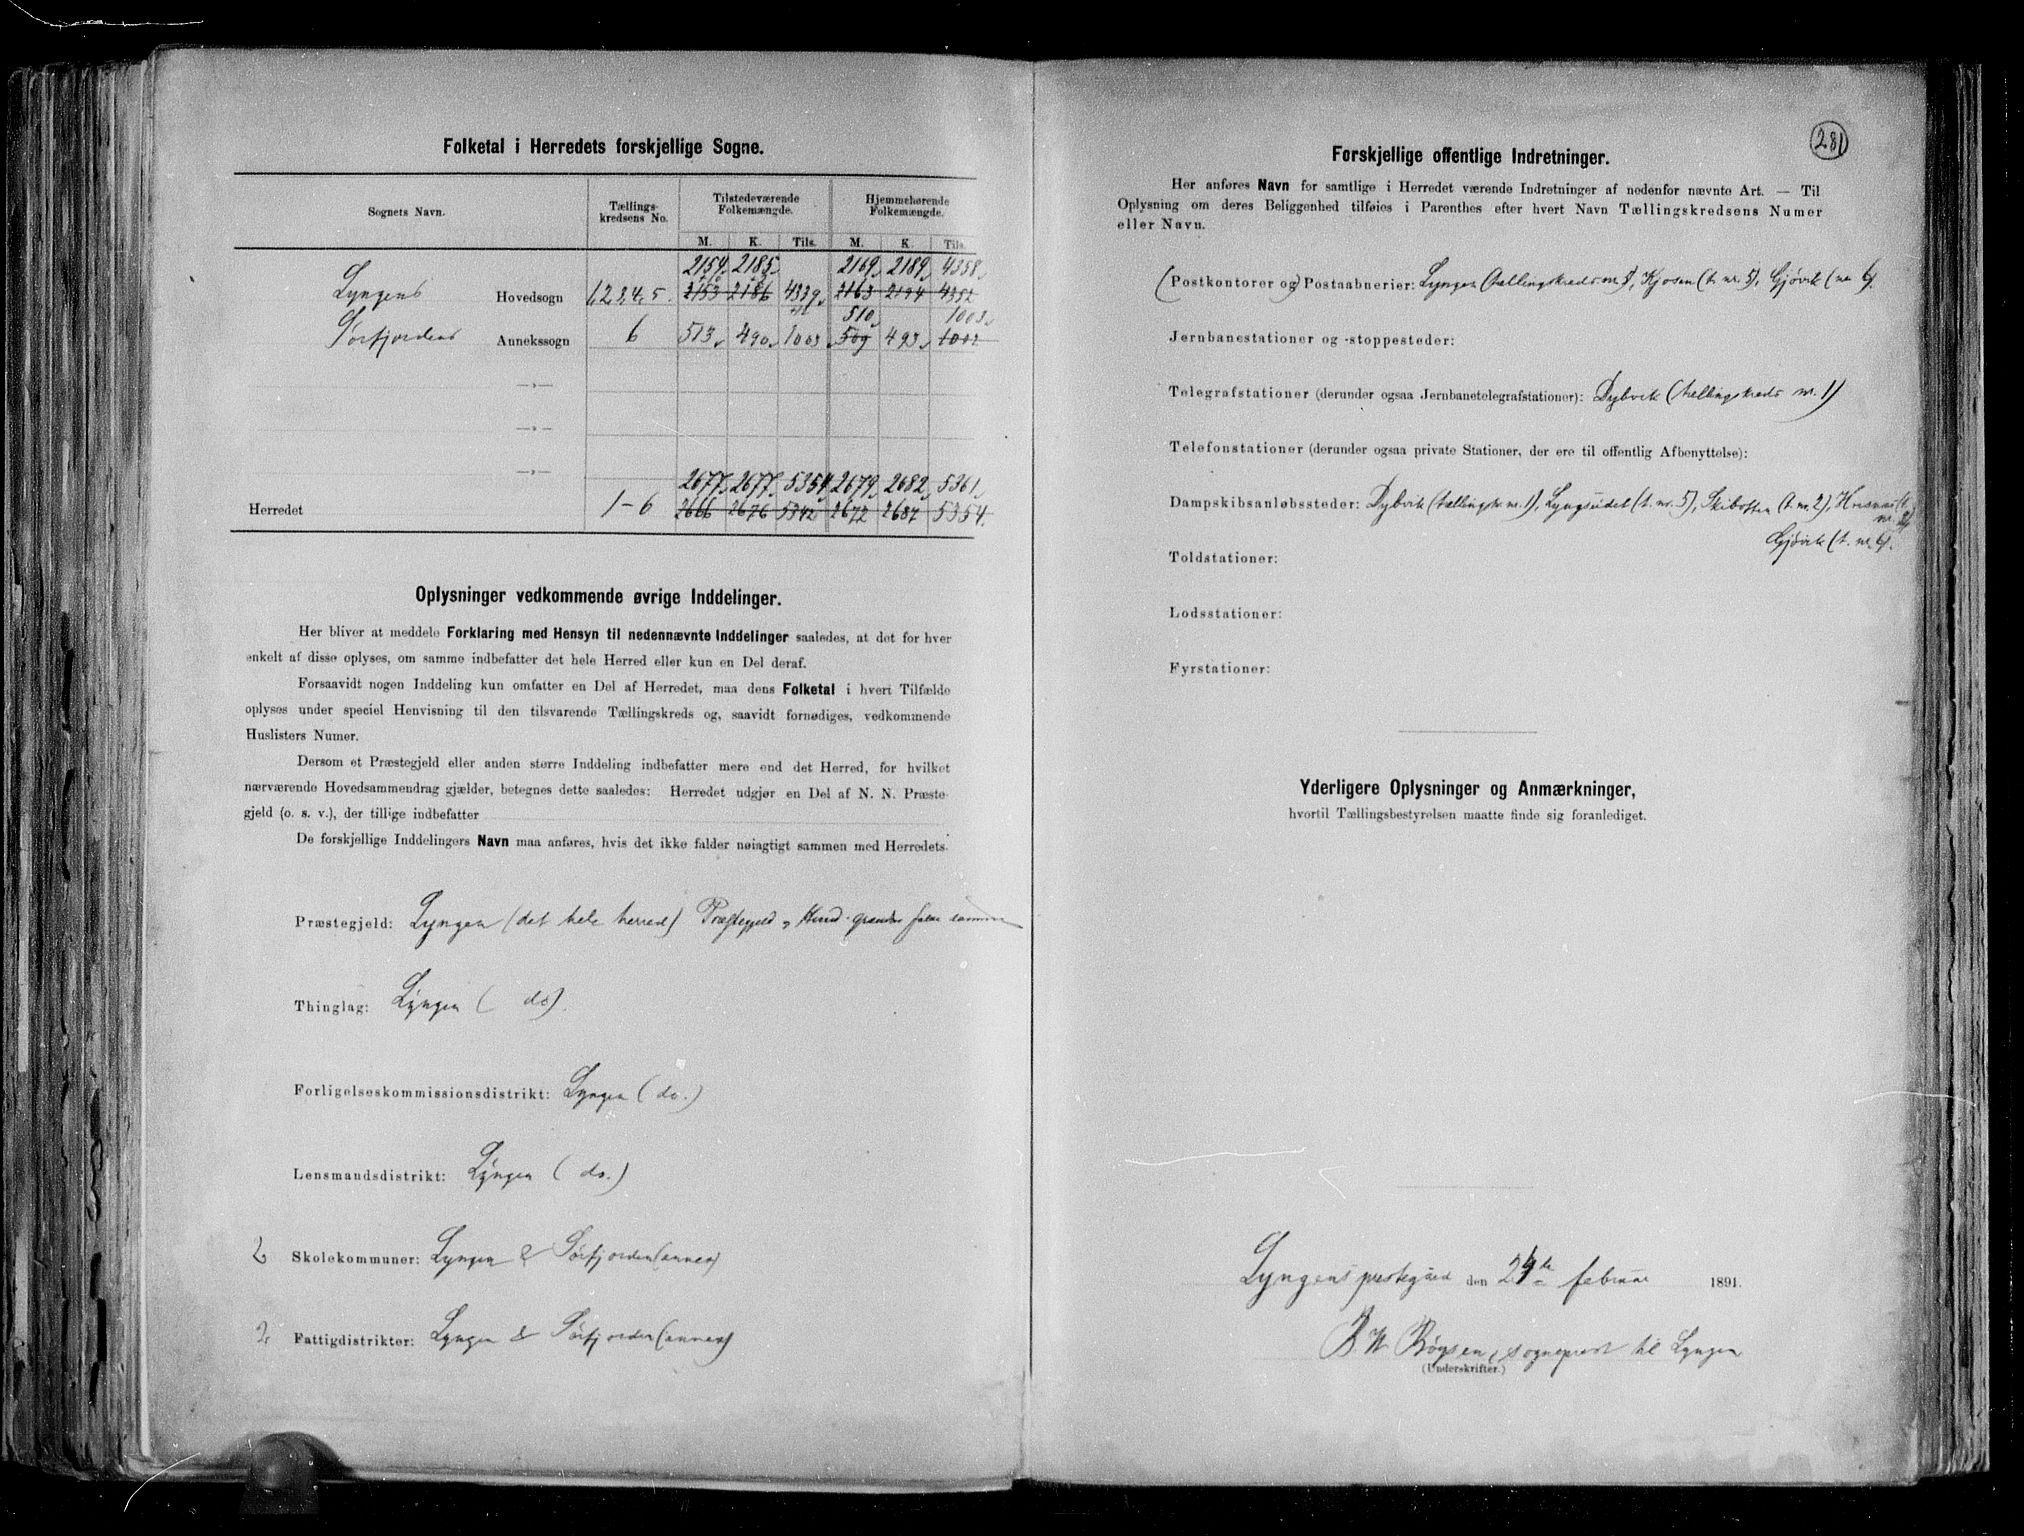 Folketal i Herredets forskjellige Sogne.
Sognets Navn.
Tællings-
kredsens No.
Tilstedeværende
Folkemængde.
Hjemmehørende
Folkemængde.
M. K. Tils. M. K. Tils.
2154 2185 2169 2189 4358
Lyngens Hovedsogn 1,2,3,4,5. 2153 2186 4339 2163 2194 4352
510 1003
Sørfjordens Annekssogn 6 513 490 1003 509 493 1002
—»—
—»—
—»—
2677 2677 5354 2679 2682 5361
Herredet 1-6 2666 2676 5342 2672 2687 5354.
Oplysninger vedkommende øvrige Inddelinger.
Her bliver at meddele Forklaring med Hensyn til nedennævnte Inddelinger saaledes, at det for hver
enkelt af disse oplyses, om samme indbefatter det hele Herred eller kun en Del deraf.
Forsaavidt nogen Inddeling kun omfatter en Del af Herredet, maa dens Folketal i hvert Tilfælde
oplyses under speciel Henvisning til den tilsvarende Tællingskreds og, saavidt fornødiges, vedkommende
Huslisters Numer.
Dersom et Præstegjeld eller anden større Inddeling indbefatter mere end det Herred, for hvilket
nærværende Hovedsammendrag gjælder, betegnes dette saaledes: Herredet udgjør en Del af N. N. Præste-
gjeld (o. s. v.), der tillige indbefatter
De forskjellige Inddelingers Navn maa anføres, hvis det ikke falder nøiagtigt sammen med Herredets.
Præstegjeld: Lyngen (det hele herred) Præstegjeld
Thinglag: Lyngen ( do)
Forligelseskommissionsdistrikt: Lyngen (do.)
Lensmandsdistrikt: Lyngen (do.)
2 Skolekommuner: Lyngen & Sørfjorden (annex)
2 Fattigdistrikter: Lyngen & Sørfjorden (annex)
281
Forskjellige offentlige Indretninger.
Her anføres Navn for samtlige i Herredet værende Indretninger af nedenfor nævnte Art. — Til
Oplysning om deres Beliggenhed tilføies i Parenthes efter hvert Navn Tællingskredsens Numer
eller Navn.
(Postkontorer og) Postaabnerier: Lyngen (tællingskreds nr. 5), Kjosen (t. nr. 5), Gjøvik (nr. 6).
Jernbanestationer og -stoppesteder:
Telegrafstationer (derunder ogsaa Jernbanetelegrafstationer): Dybvik (tællingskreds nr. 1)
Telefonstationer (derunder ogsaa private Stationer, der ere til offentlig Afbenyttelse):
Dampskibsanløbssteder: Dybvik (tællingskr nr. 1), Lyngseidet (t. nr. 5), Skibotten (t. nr. 2),
Gjøvik (t. nr. 6).
Toldstationer:
Lodsstationer:
Fyrstationer:
Yderligere Oplysninger og Anmærkninger,
hvortil Tællingsbestyrelsen maatte finde sig foranlediget.
Lyngens prestegaard den 24de februar 1891.
sogneprest til Lyngen
(Underskrifter.)